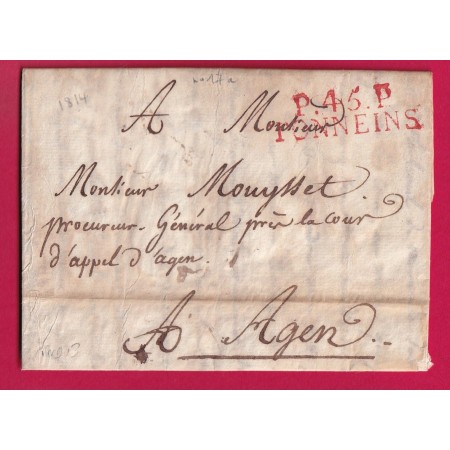 1814
P.45.P
TONNEINS
A Monsieur
Monsieur Mouysset
procureur-Général près la Cour
d'appel d'agen.
A Agen.